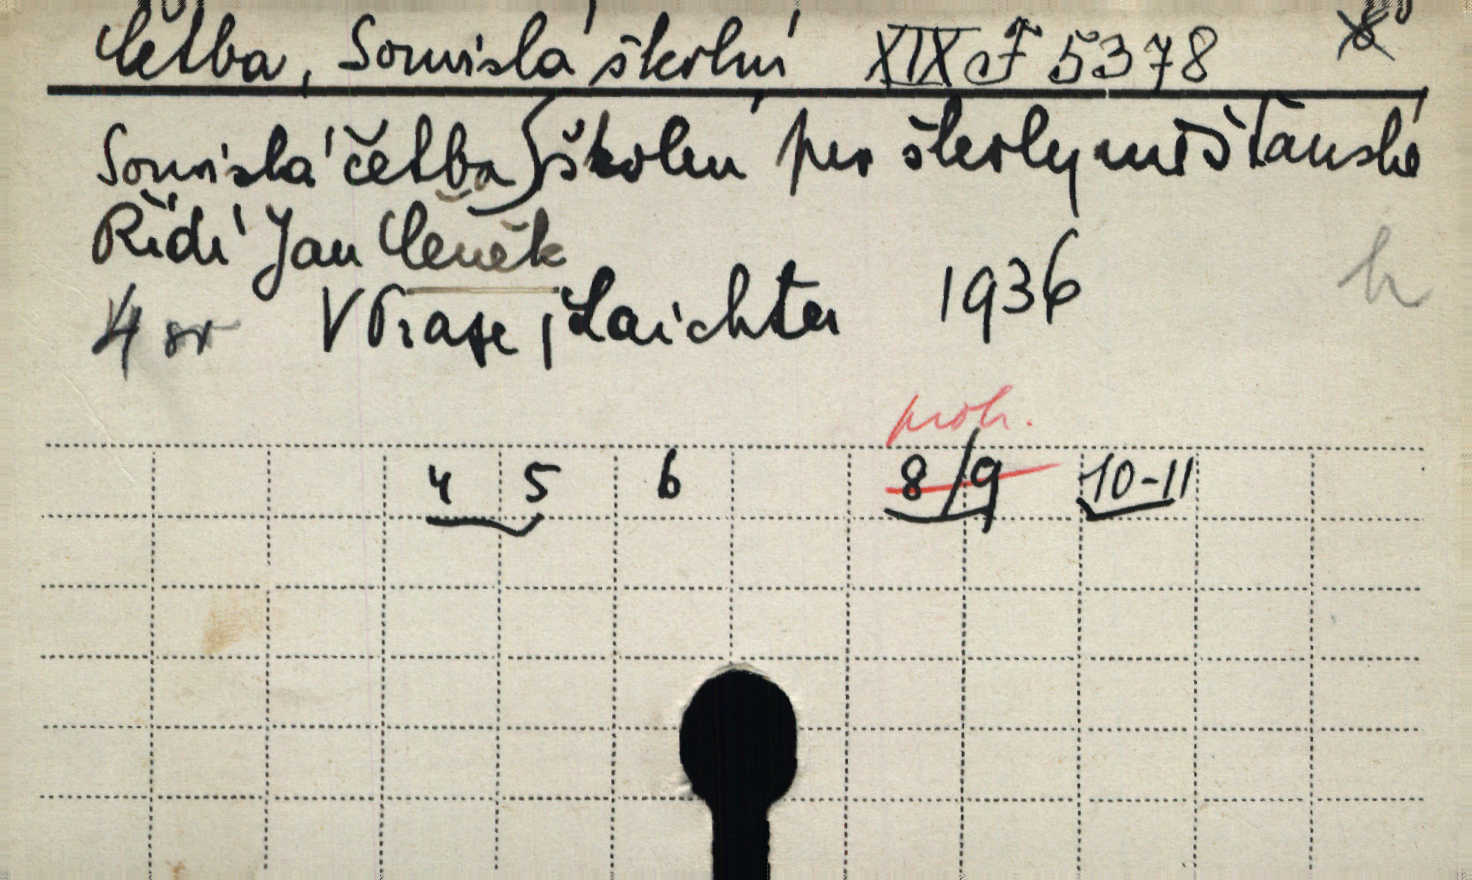 Četba, Souvislá školní XIX J 5378
Souvislá četba školní pro školy měšťanské
Řídí Jan Čeněk
4 sv V Praze, Laichter 1936
proh.
4 5 6 8/9 10-11